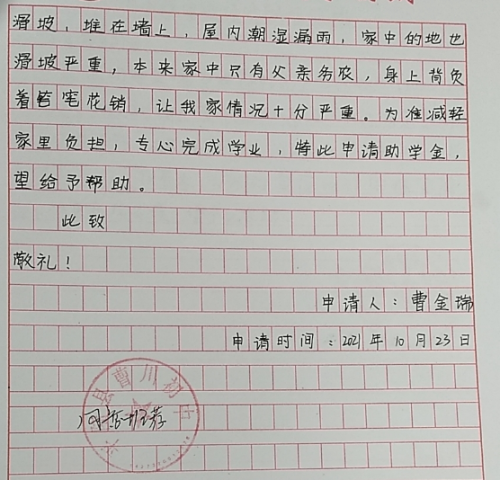 滑坡，堆在墙上，屋内潮湿漏雨，家中的地也
滑坡严重，本来家中只有父亲务农，身上背负
着花销，让我家情况十分严重。为准减轻
家里负担，专心完成学业，特此申请助学金，
望给予帮助。
此致
敬礼！
申请人：曹金瑞
申请时间：2021年10月23日
县曹川初中
同意推荐